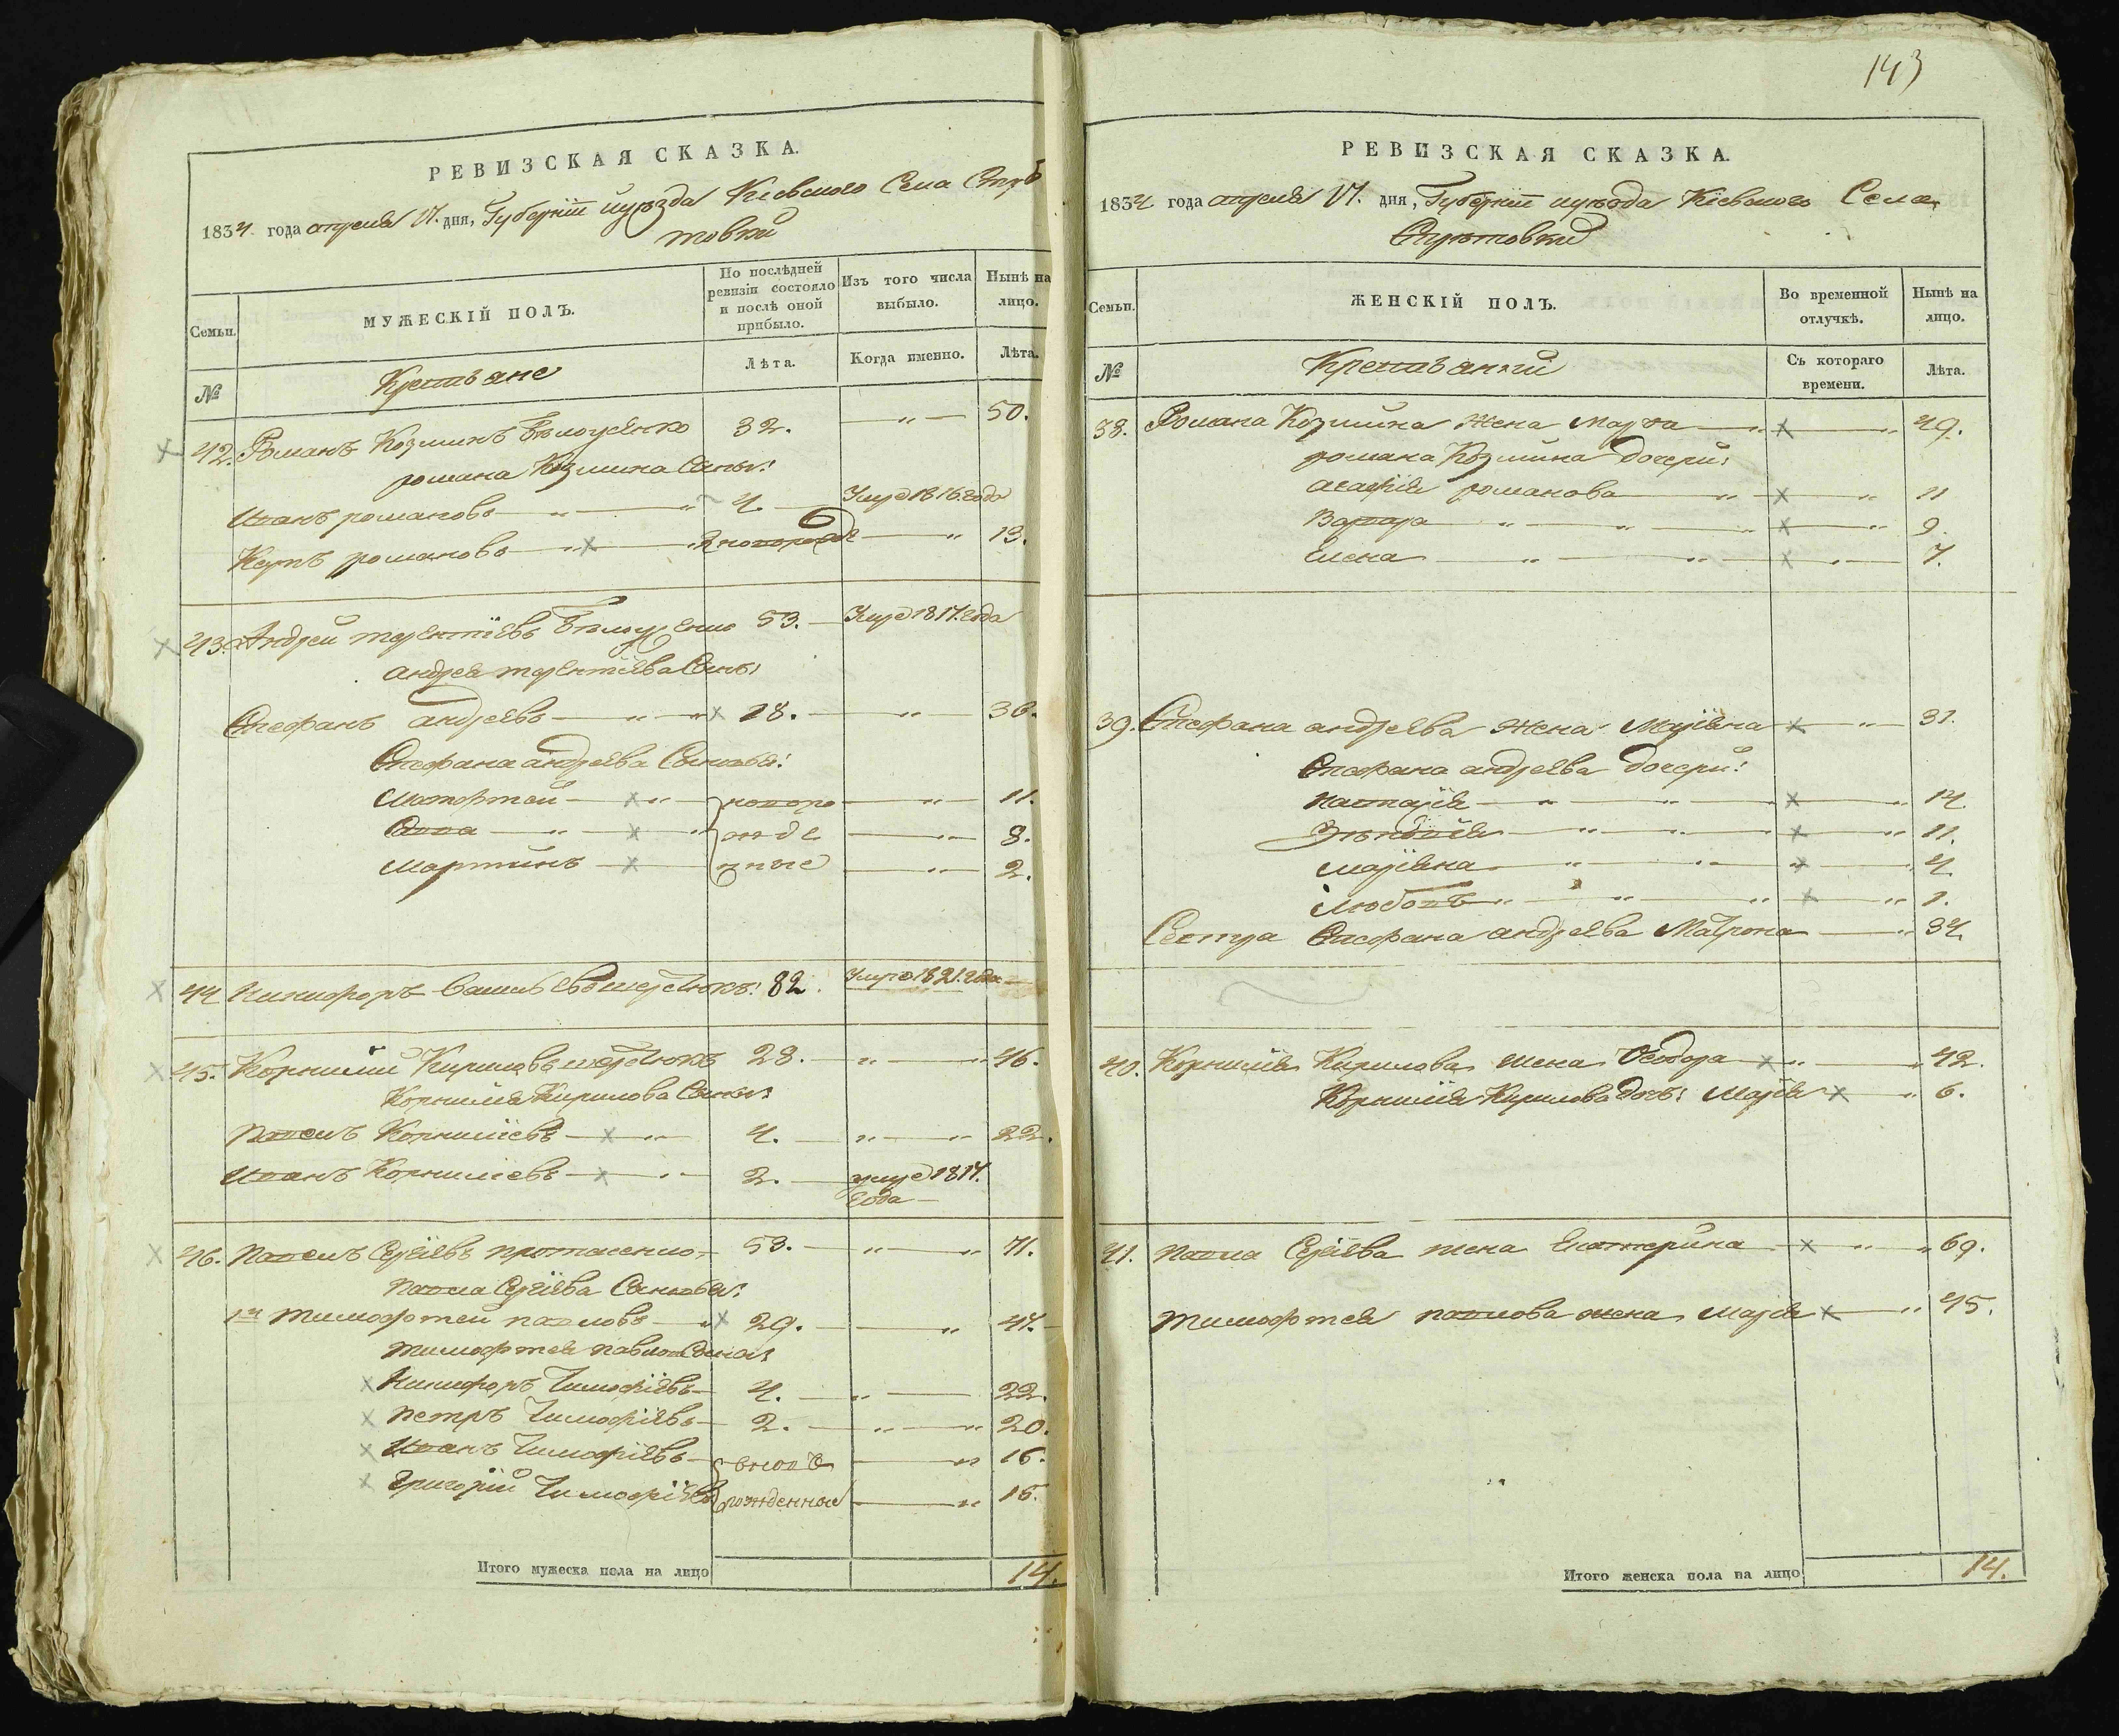 РЕВИЗСКАЯ СКАЗКА.
1834 года апреля 17. дня, Губернїи и уѣзда Кїевского Села
товки
Семьи.
МУЖЕСКІЙ ПОЛЪ.
По послѣдней ревизіи состояло и послѣ оной прибыло.
Изъ того числа выбыло.
Нынѣ на лицо.
№
Крестьяне
Лѣта.
Когда именно.
Лѣта.
42. Романъ Козминъ Бѣлоусенко 32. 50.
романа Козмина Сыны:
Иванъ романовъ 4. Умре 1816. года
Карпъ романовъ 13.
43. Андрей терентїевъ 53. Умре 1817. года
андрея терентїева Сынъ:
Стефанъ андреевъ 18. 36.
Стефана андреева Сыновья:
Матфтей 11.
Савва 8.
Мартинъ 2.
новоро
жде
нные
44 Никифоръ 82. Умре 1821. года
45. Корнилий Кириловъ 28. 46.
Корнилїя Кирилова Сыны:
Павелъ Корнилїевъ 4. 22.
Иванъ Корнилїевъ 2. умре 1817.
года
46. Павелъ Сергїевъ протасенко 53. 71.
Павла Сергїева Сыновья:
1й Тимофтей павловъ 29. 47.
Тимофтея павлова Сыны:
Никифоръ Тимофїевъ 4. 22.
Петръ Тимофїевъ 2. 20.
Иванъ Тимофїевъ вновь 16.
Григорїй Тимофїевъ рожденные 15.
Итого мужеска пола на лицо 14.
143
РЕВИЗСКАЯ СКАЗКА.
1834 года апреля 17. дня, Губернїи и уѣзда Кїевского Села
Семьи.
ЖЕНСКІЙ ПОЛЪ.
Во временной отлучкѣ.
Нынѣ на лицо.
№
Крестьянки
Съ котораго времени.
Лѣта.
38. Романа Козмина жена Марфа 49.
романа Козмина дочери:
агафїя романова 11
Варвара 9.
Елена 7.
39. Стефана андреева жена Марїяна 31.
Стефана андреева дочери:
настасїя 14.
11.
Марїяна 4.
Любовъ 1.
Сестра Стефана андреева Матрона 34.
40. Корнилїя Кирилова жена Феодора 42.
Корнилїя Кирилова дочь: Марїя 6.
41. Павла Сергїева жена Екатерина 69.
Тимофтея павлова жена Марїя 45.
Итого женска пола на лицо 14.